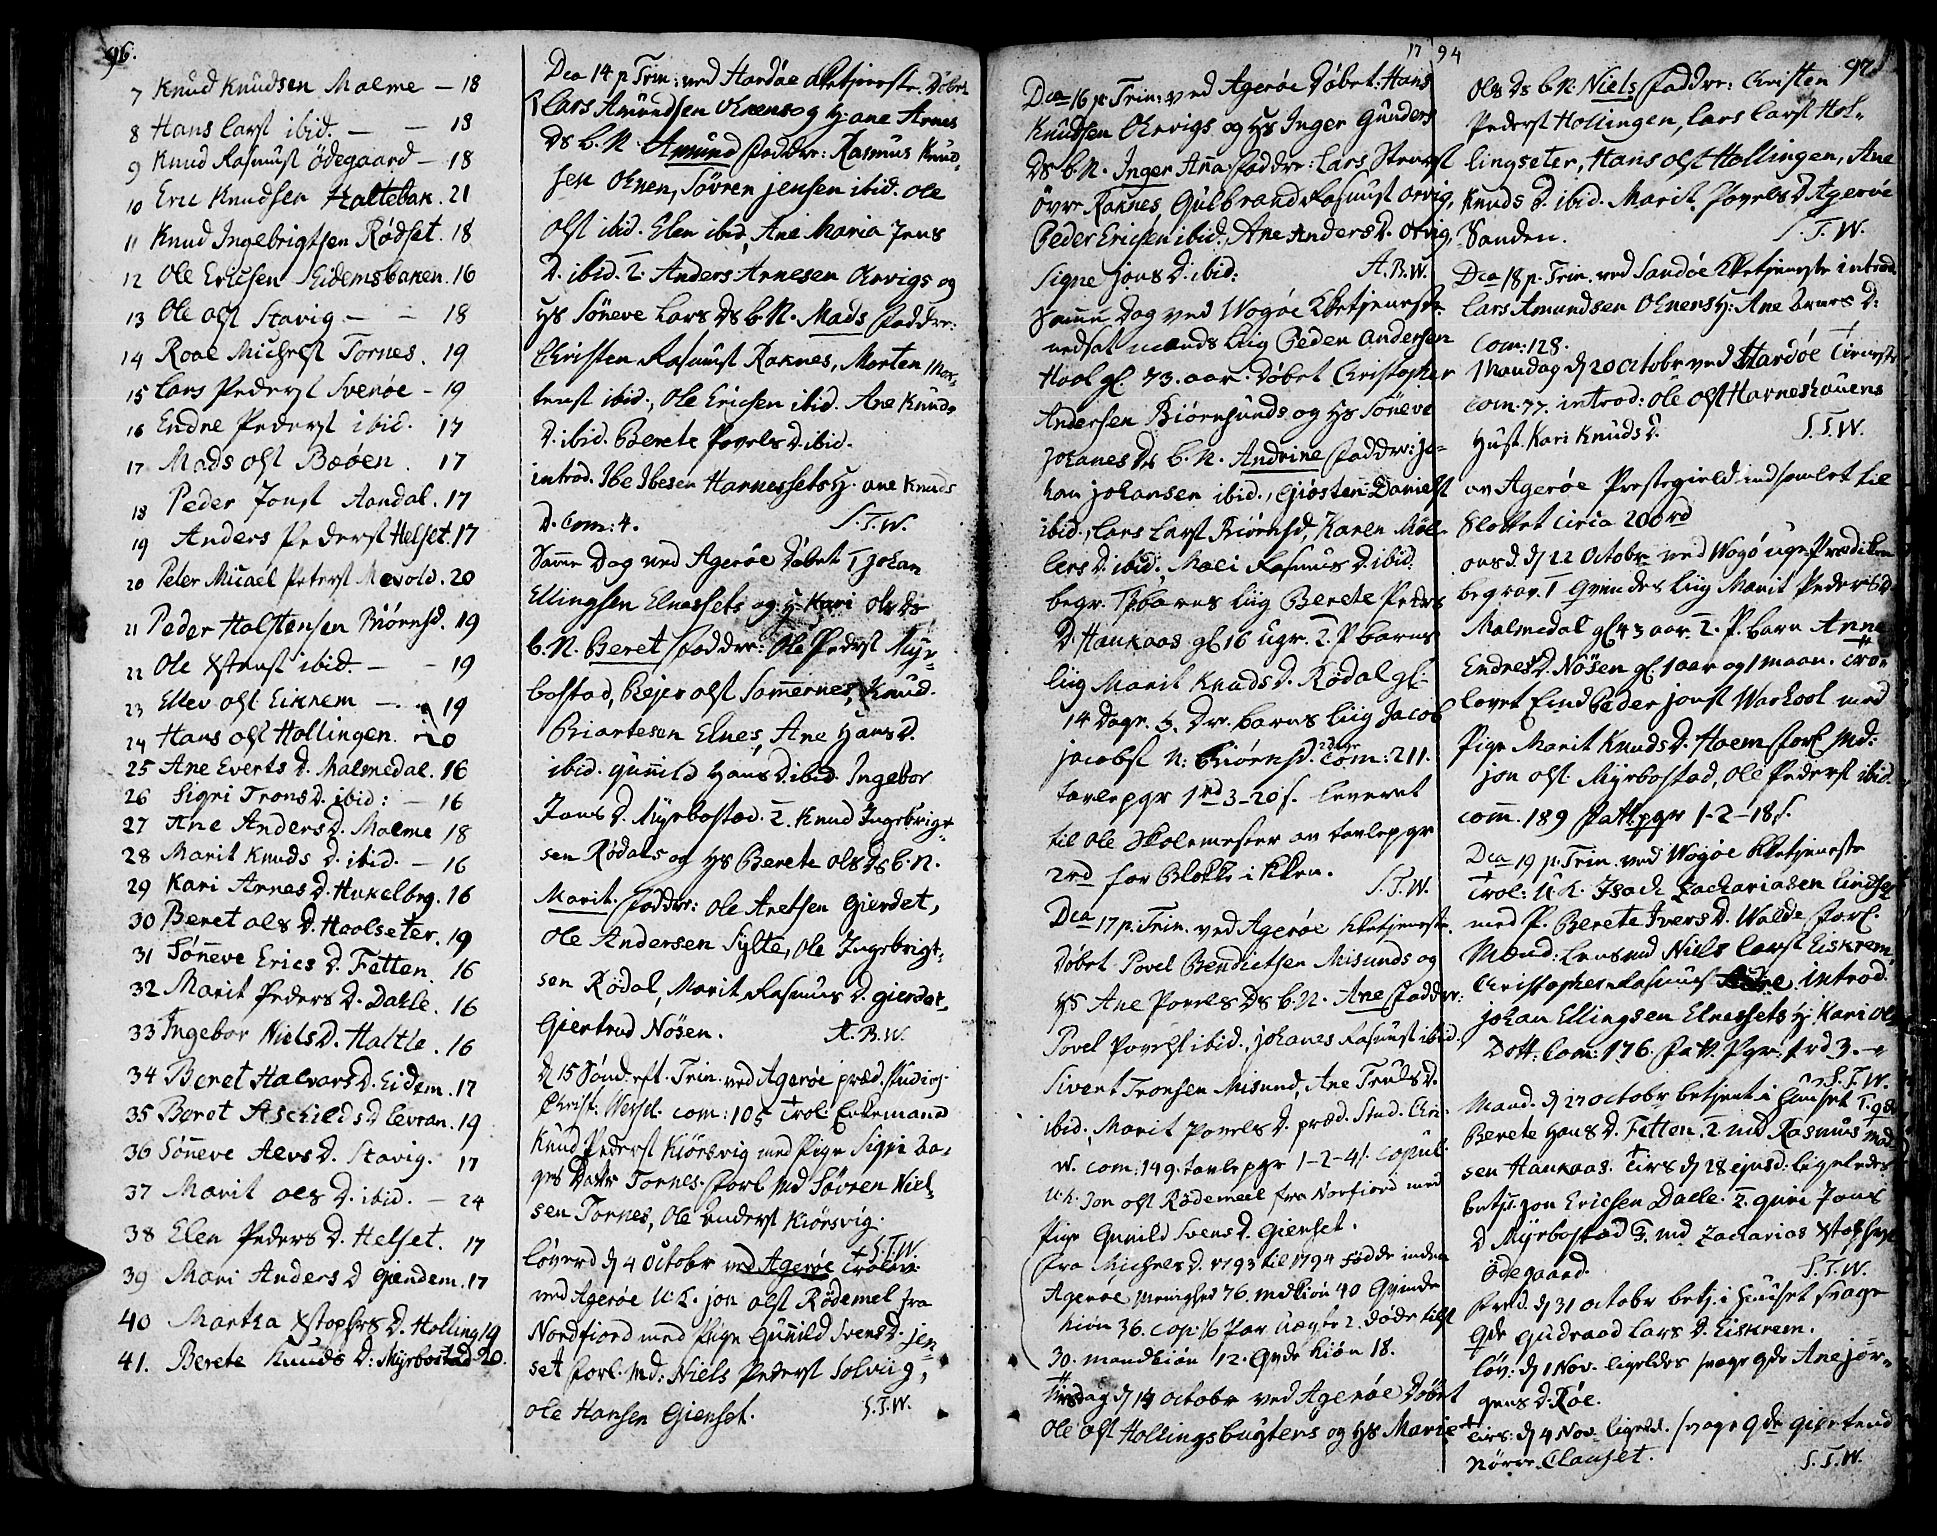 96.
7 Knud Knudsen Malme — 18
8 Hans Larst ibid. — — 18
9 Knud Rasmust Ödegaard — 18
10 Eric Knudsen Haltebak. 21
11 Knud Ingebrigtsen Rödset. 18
12 Ole Ericsen Eidemsbaken. 16
13 Ole Olst Stavig — — 18
14 Roal Michelst Tornes. 19
15 Lars Pederst Svenöe — 19
16 Endre Pederst ibid. 17
17 Mads Olst Bøöen. 17
18 Peder Jonst Aandal. 17
19 Anders Pederst Helset. 17
20 Peter Micael Peterst Mevold. 20
21 Peder Halstensen Biörnsd. 19
22 Ole Xstenst ibid. — — 19
23 Ellev Olst Eikrem — 19
24 Hans Olst Hollingen. 20
25 Ane Everts D. Malmedal. 16
26 Sigri Trons D. ibid: — 16
27 Ane Anders D. Malme 18
28 Marit Knuds D. ibid. — 16
29 Kari Arnes D. Hukelbrg. 16
30 Beret Ols D. Haalseter. 19
31 Sönneve Erics D. Fetten 16
32 Marit Peders D. Dalle. 16
33 Ingebor Niels D. Haltle. 16
34 Beret Halvars D. Eidem. 17
35 Beret Aschilds D. Levran. 19
36 Sönneve Aevs D. Stavig. 17
37 Marit Ols D. ibid. — 24
38 Elen Peders D. Helset. 17
39 Mari Anders D Giendem. 17
40 Martha Xstophrs D. Holling 19
41. Berete Knuds D: Myrbostad 20.
Dca 14 p Trin: ved Hardöe Kketjeneste. Döbet
Lars Amundsen Oenens og H: ane Arnes
Ds b. N. Amund faddre: Rasmus Knud
sen Oenen, Sövren Jensen ibid. Ole
Olst ibid. Elen ibid, Ane Maria Jens
D. ibid. 2. Anders Arnesen Orvigs og
Hs Söneve Lars Ds b. N. Mads faddre:
Christen Rasmust Raknes, Morten Mor-
tenst ibid., Ole Ericsen ibid. Ane Knuds
D. ibid. Berete Povels D. ibid.
introd. Ibe Ibesen Harnessets H. ane Knuds
D. Com: 4. S. T. W.
Samme Dag ved Ageröe Döbet 1 Johan
Ellingsen Elnessets og H. Kari Ols Ds
b. N. Beret faddre: Ole Pederst Myr-
bostad, Reier Olst Sommernes, Knud
Biartesen Elnes, Ane Hans D.
ibid. gunild Hans D. ibid. Ingebor
Jons D. Myrbostad. 2. Knud Ingebrigt-
sen Rödals og Hs Berete Ols Ds b. N.
Marit. faddre: Ole Aretsen Gierdet,
Ole Andersen Sylte, Ole Ingebrigt-
sen Rödal, Marit Rasmus D. gierdet
Giertrud Nösen. A. B. W.
d 15 Sönd. eft. Trin. ved Ageröe præd. Studios.
Christ: Wessel. com: 105 Trol: Enkemand
Knud Pederst Kiörsvig med Pige Sigri Aa-
ges Datr Tornes. forl. Md Sövren Niel-
sen Tornes, Ole Enderst Kiörsvig.
S. T. W.
Löverd d 4 Octobr ved Ageröe Trolov:
ved Ageröe U. K. Jon Olst Rödemel fra
Nordfiord med Pige Gunild Svens D. Jen-
set forl. Md: Niels Pederst Solviig,
Ole Hansen Gienset. S. T. W.
17 94
Dca 16 p. Trin: ved Ageröe Döbet. Hans
Knudsen Orvigs og Hs Inger Gunders
Ds b. N. Inger Anna. faddre: Lars
övre Raknes, Gulbrand Rasmust Orvig,
Peder Ericsen ibid., Ane Anders D. Orvig,
Signe Jons D. ibid: A. B. W.
Samme Dag ved Wogöe Kketjeneste
nedsat mands Liig Peder Andersen
Hool gl. 73. aar. Döbet Christopher
Andersen Biörnsunds og Hs Söneve
Johanes Ds b. N. Andrine faddre: Jo-
han Johansen ibid., Giösten Danielst
ibid., Lars Larst Biörnsd, Karen Möl-
lers D. ibid., Mali Rasmus D. ibid.
begr. 1 P. barns Liig Berete Peders
D. Haukaas gl. 16 ugr. 2. P barns
Liig Marit Knuds D. Rödal gl.
14 Dage. 3. Dr. barns Liig Jacob
Jacobst N: Biörnsd. com: 211.
tavlepgr 1 rd 3-20 s. leveret
til Ole Skolemester av tavlepgr
2 rd for Blokke i Kken. S. T. W.
Dca 17 p. Trin. ved Ageröe Kketjeneste.
Döbet Povel Bendictsen Misunds og
Hs Ane Povels Ds b. N. Ane faddre:
Povel Povelst ibid., Johanes Rasmust ibid.
Sivert Tronsen Misund, Ane Truls D.
ibid., Marit Povels D. præd. Stud. Chr.
W. com: 149. tavlepgr 1-2-4 s. Copul.
U. K. Jon Olst Rödemel fra Norfiord med
Pige Gunild Svens D. Gienset.
fra Michels D. 1793 til 1794 födde inden
Ageröe Menighed 76. Mdkiön 40 Qvinde
kiön 36. Cop: 16 Par uægte 2. Döde tilst
30. mandkiön 12. Qvde kiön 18.
Tirsdag d 14 Octobr ved Ageröe Döbet
Ole Olst Hollingsbugtens og Hs Marie
97.
Ols Ds b. N. Niels faddre: Christen
Pederst Hollingen, Lars Larst Hol-
lingseter, Hans Olst Hollingen, Ane
Knuds D. ibid. Marit Povels D. Ageröe
Sanden. S. T. W.
Dca 18 p. Trin. ved Sandöe Kketjeneste introd
Lars Amundsen Oenens H: Ane D:
Com: 128.
Mandag d 20 Octobr ved Hardöe
Com: 77. introd: Ole Olst Harneshauens
Hust. Kari Knuds D. S. T. W.
av Ageröe Prestegield indsamlet til
Slottet Circa 200 rd
onsd. d 22 Octobr ved Wogö ugePrædiken
begrav. 1 Qvindes Liig Marit Peders D
Malmedal gl 43 aar. 2. P. barn Anne
Endres D. Nösen gl. 1 aar og 1 maan. tro-
lovet E md Peder Jonst Warhool med
Pige Marit Knuds D. Haem forl Md:
Jon Olst Myrbostad, Ole Pederst ibid.
com. 189 fattpgr 1-2-18 s.
Dca 19 p. Trin ved Wogöe Kketjeneste
Trol: U. K. Isach Zachariasen Lindset
med P. Berete Ivers D. Walde. forl.
Mænd: Lensmd Niels Larst Eiskrem,
Christopher Rasmust introd.
Johan Ellingsen Elnessets H: Kari Ols
Dott. Com: 176. fatt. pgr. 1 rd 3.
S. T. W.
Mand. d 27 octobr betjent i Huuset 1. qde
Berete Hans D. Fetten. 2 md Rasmus Mad-
sen Haukaas. Tirs d 28 ejusd: ligeledes
betj. Jon Ericsen Dalle. 2. guri Jons
D Myrbostad 3. md Zacharias Xstophst
Ödegaard. S. T. W.
Fred. d 31 octobr betj. i Huuset svage
Qde Gudraad Lars D. Eiskrem.
Löv: d 1 Nov. ligeldes svage Qde Ane Jör-
gens D. Röe.
tirs: d 4 Nov. ligeld. svage Qde giertrud
Nörre Clauset. S. T. W.